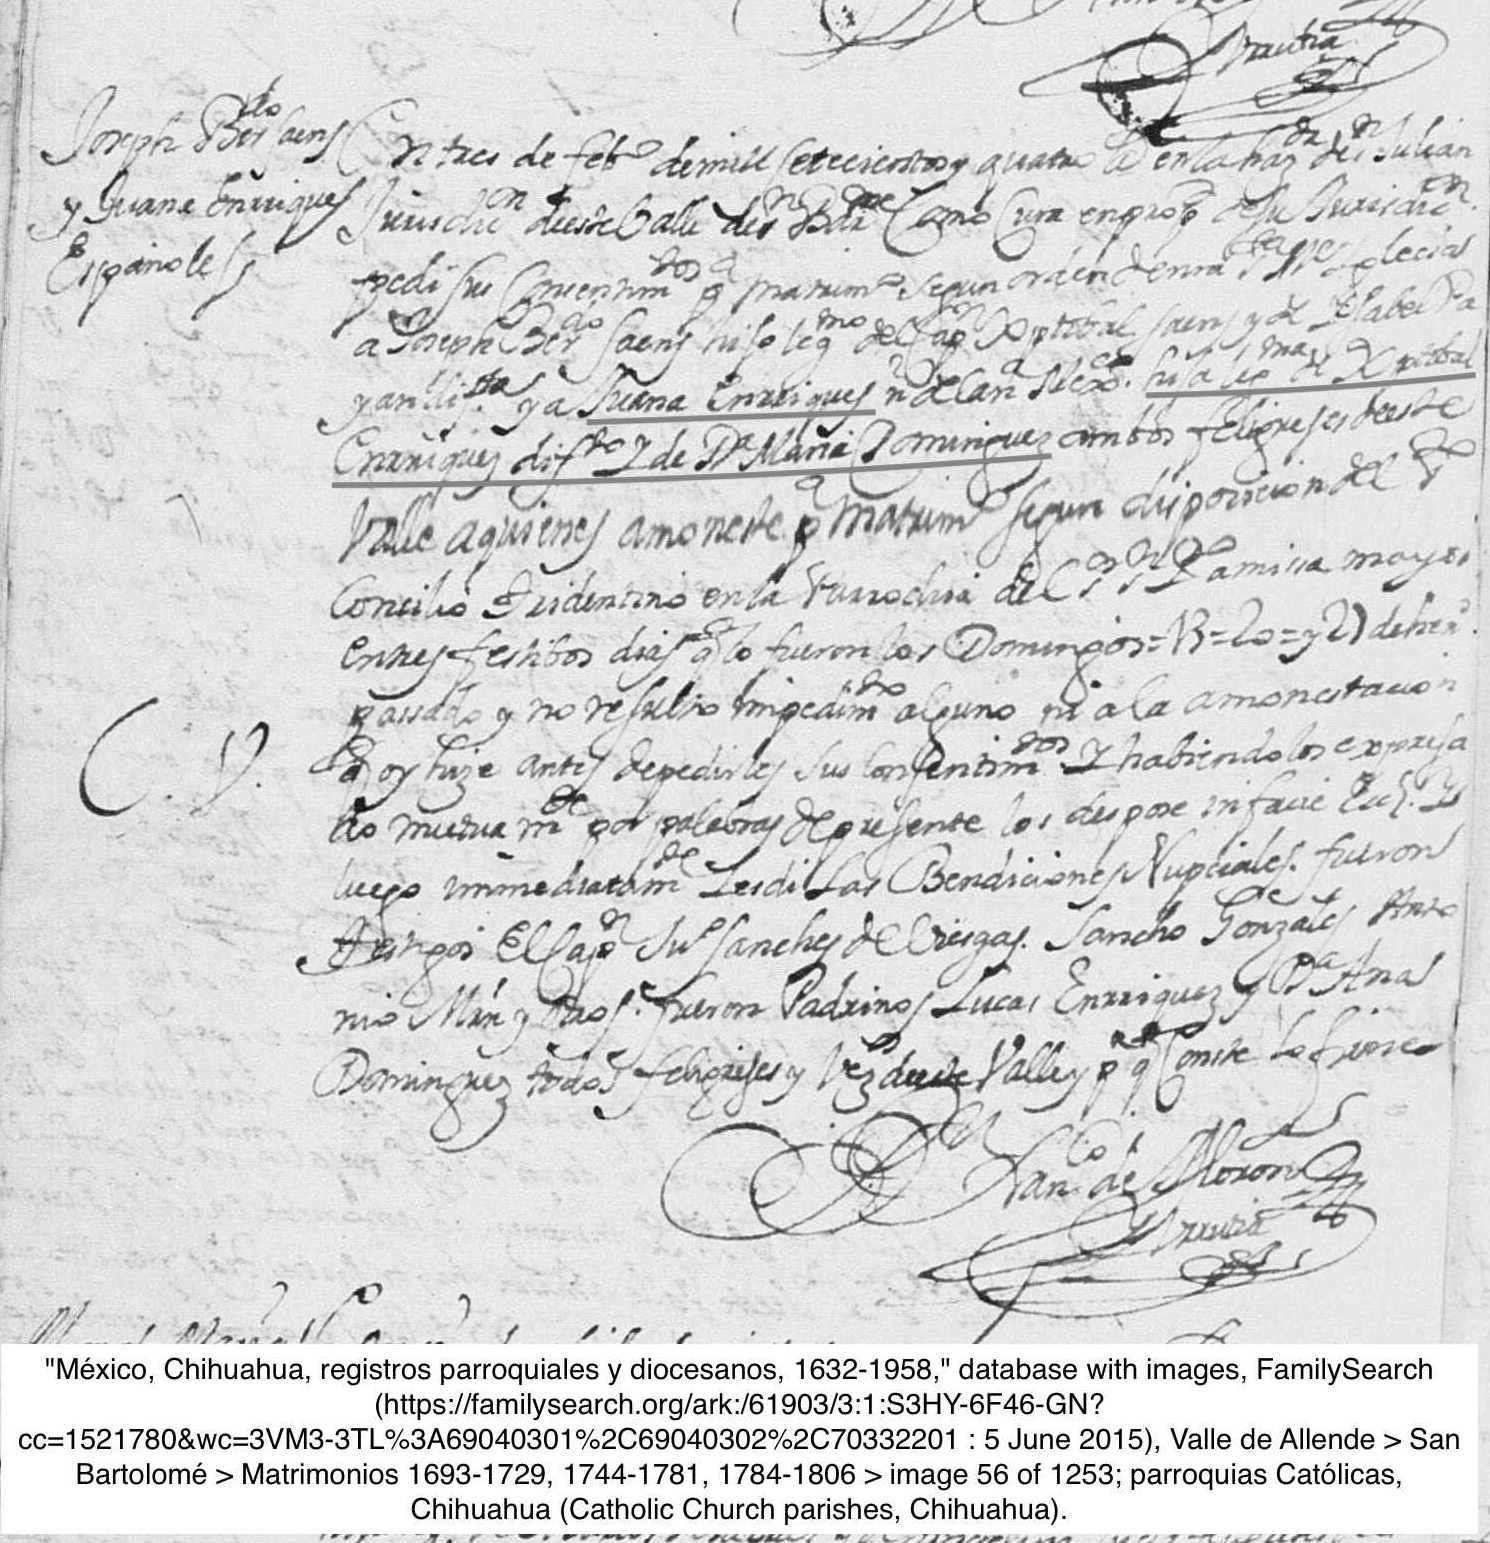 Urrutia
Joseph Berdo Saens
y Juana Enrriques
Españoles
En tres de febo de mill setecientos y quatro a en la hazda de sn Julian
Jurisdicn deeste Valle de sn Barme Como Cura en propd de su Jurisdicn
pedi sus Consentimtos pa matrimo segun orden de nra sta Me Yglecia
a Joseph Berdo Saens hijo legmo del Capn Xptobal Saens y de Ysabel
y a Juana Enrriques hija lega de Xptobal
Enrriques difto Y de Da Maria Dominguez ambos feligreses deeste
Valle a quienes amoneste pa Matrimo segun disposicion del sto
Concilio Tridentino en la Parrochia de la missa mayor
en tres festibos dias q lo fueron los Domingos = 13 = 20 = y 27 de heno
passado y no resulto impedimto alguno ni a la amonestacion
q oy hize antes de pedirles sus Consentimtos Y habiendolos expresa
do mutuamte por palabras de presente los despose in facie Eccl. Y
luego immediatamte les di las Bendiciones Nupciales. fueron
testigos El Capn Juo Sanches de Sancho Gonzales Anto
nio Mrn y otros. fueron Padrinos Lucas Enrriquez y Da Ana
Dominguez todos feligreses y Vezos deeste Valle y pa q Conste lo firme
C. V.
Franco de Moron
Urrutia
"México, Chihuahua, registros parroquiales y diocesanos, 1632-1958," database with images, FamilySearch
(https://familysearch.org/ark:/61903/3:1:S3HY-6F46-GN?
cc=1521780&wc=3VM3-3TL%3A69040301%2C69040302%2C70332201 : 5 June 2015), Valle de Allende > San
Bartolomé > Matrimonios 1693-1729, 1744-1781, 1784-1806 > image 56 of 1253; parroquias Católicas,
Chihuahua (Catholic Church parishes, Chihuahua).